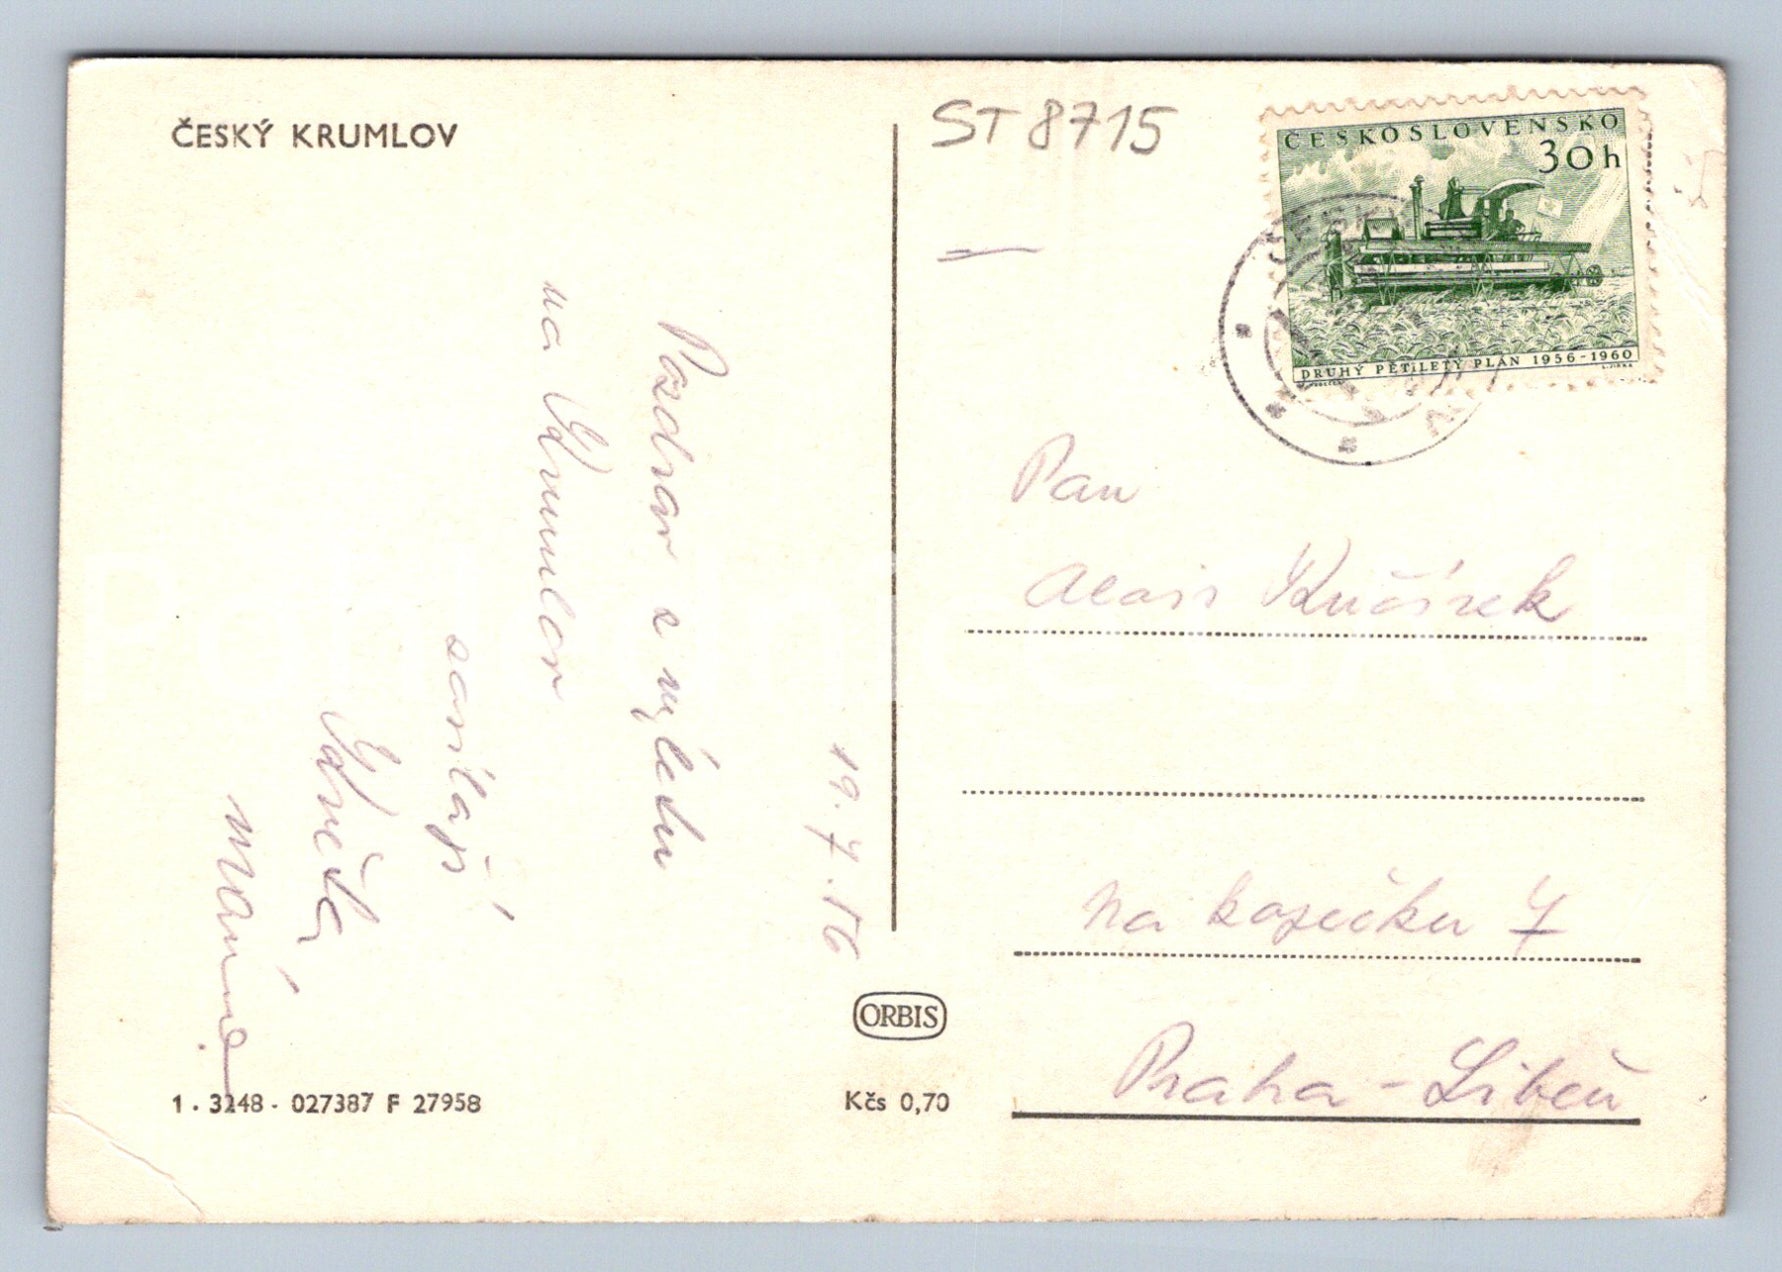 ČESKÝ KRUMLOV
ST 8715
ČESKOSLOVENSKO
30h
DRUHÝ PĚTILETÝ PLÁN 1956-1960
19.7.56
Pozdrav z výletu
na Krumlov
zasílají
Květa
Mánie
Pan
Alois Kučírek
Na kopečku 7
Praha - Libeň
ORBIS
1 . 3248 - 027387 F 27958
Kčs 0,70